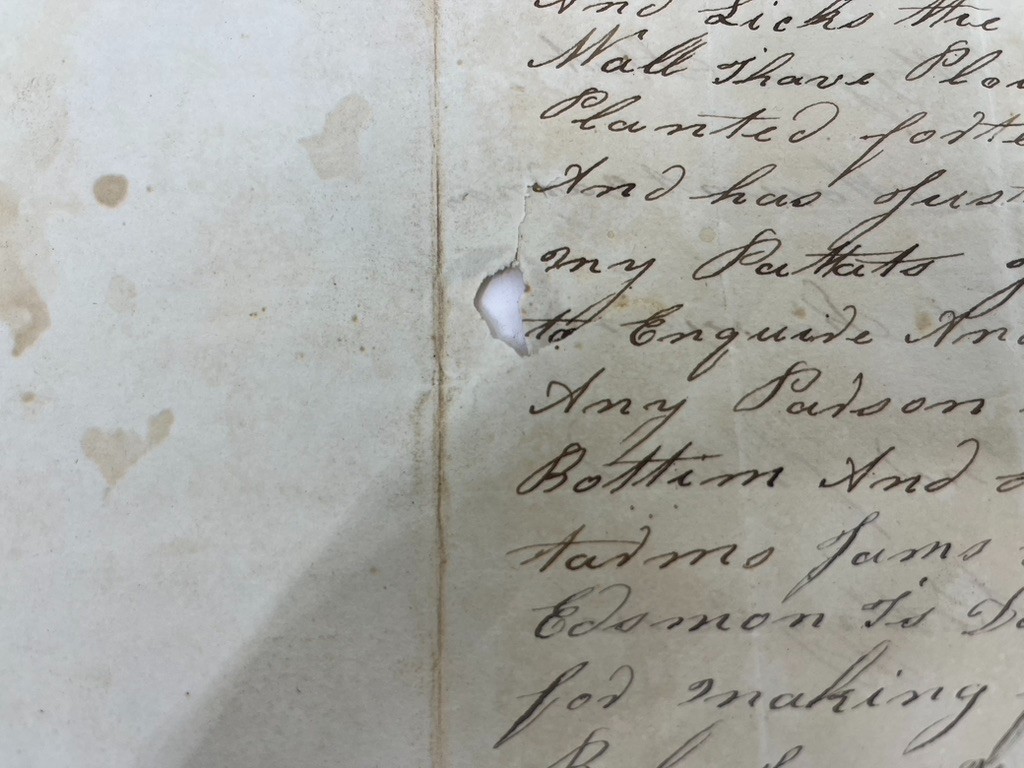 And Licks the
Wall I have Plo
Planted forte
And has Just
my Pattats
to Enquire And
Any Parson
Bottim And
tarms Jams
Edsmon Is Do
for making